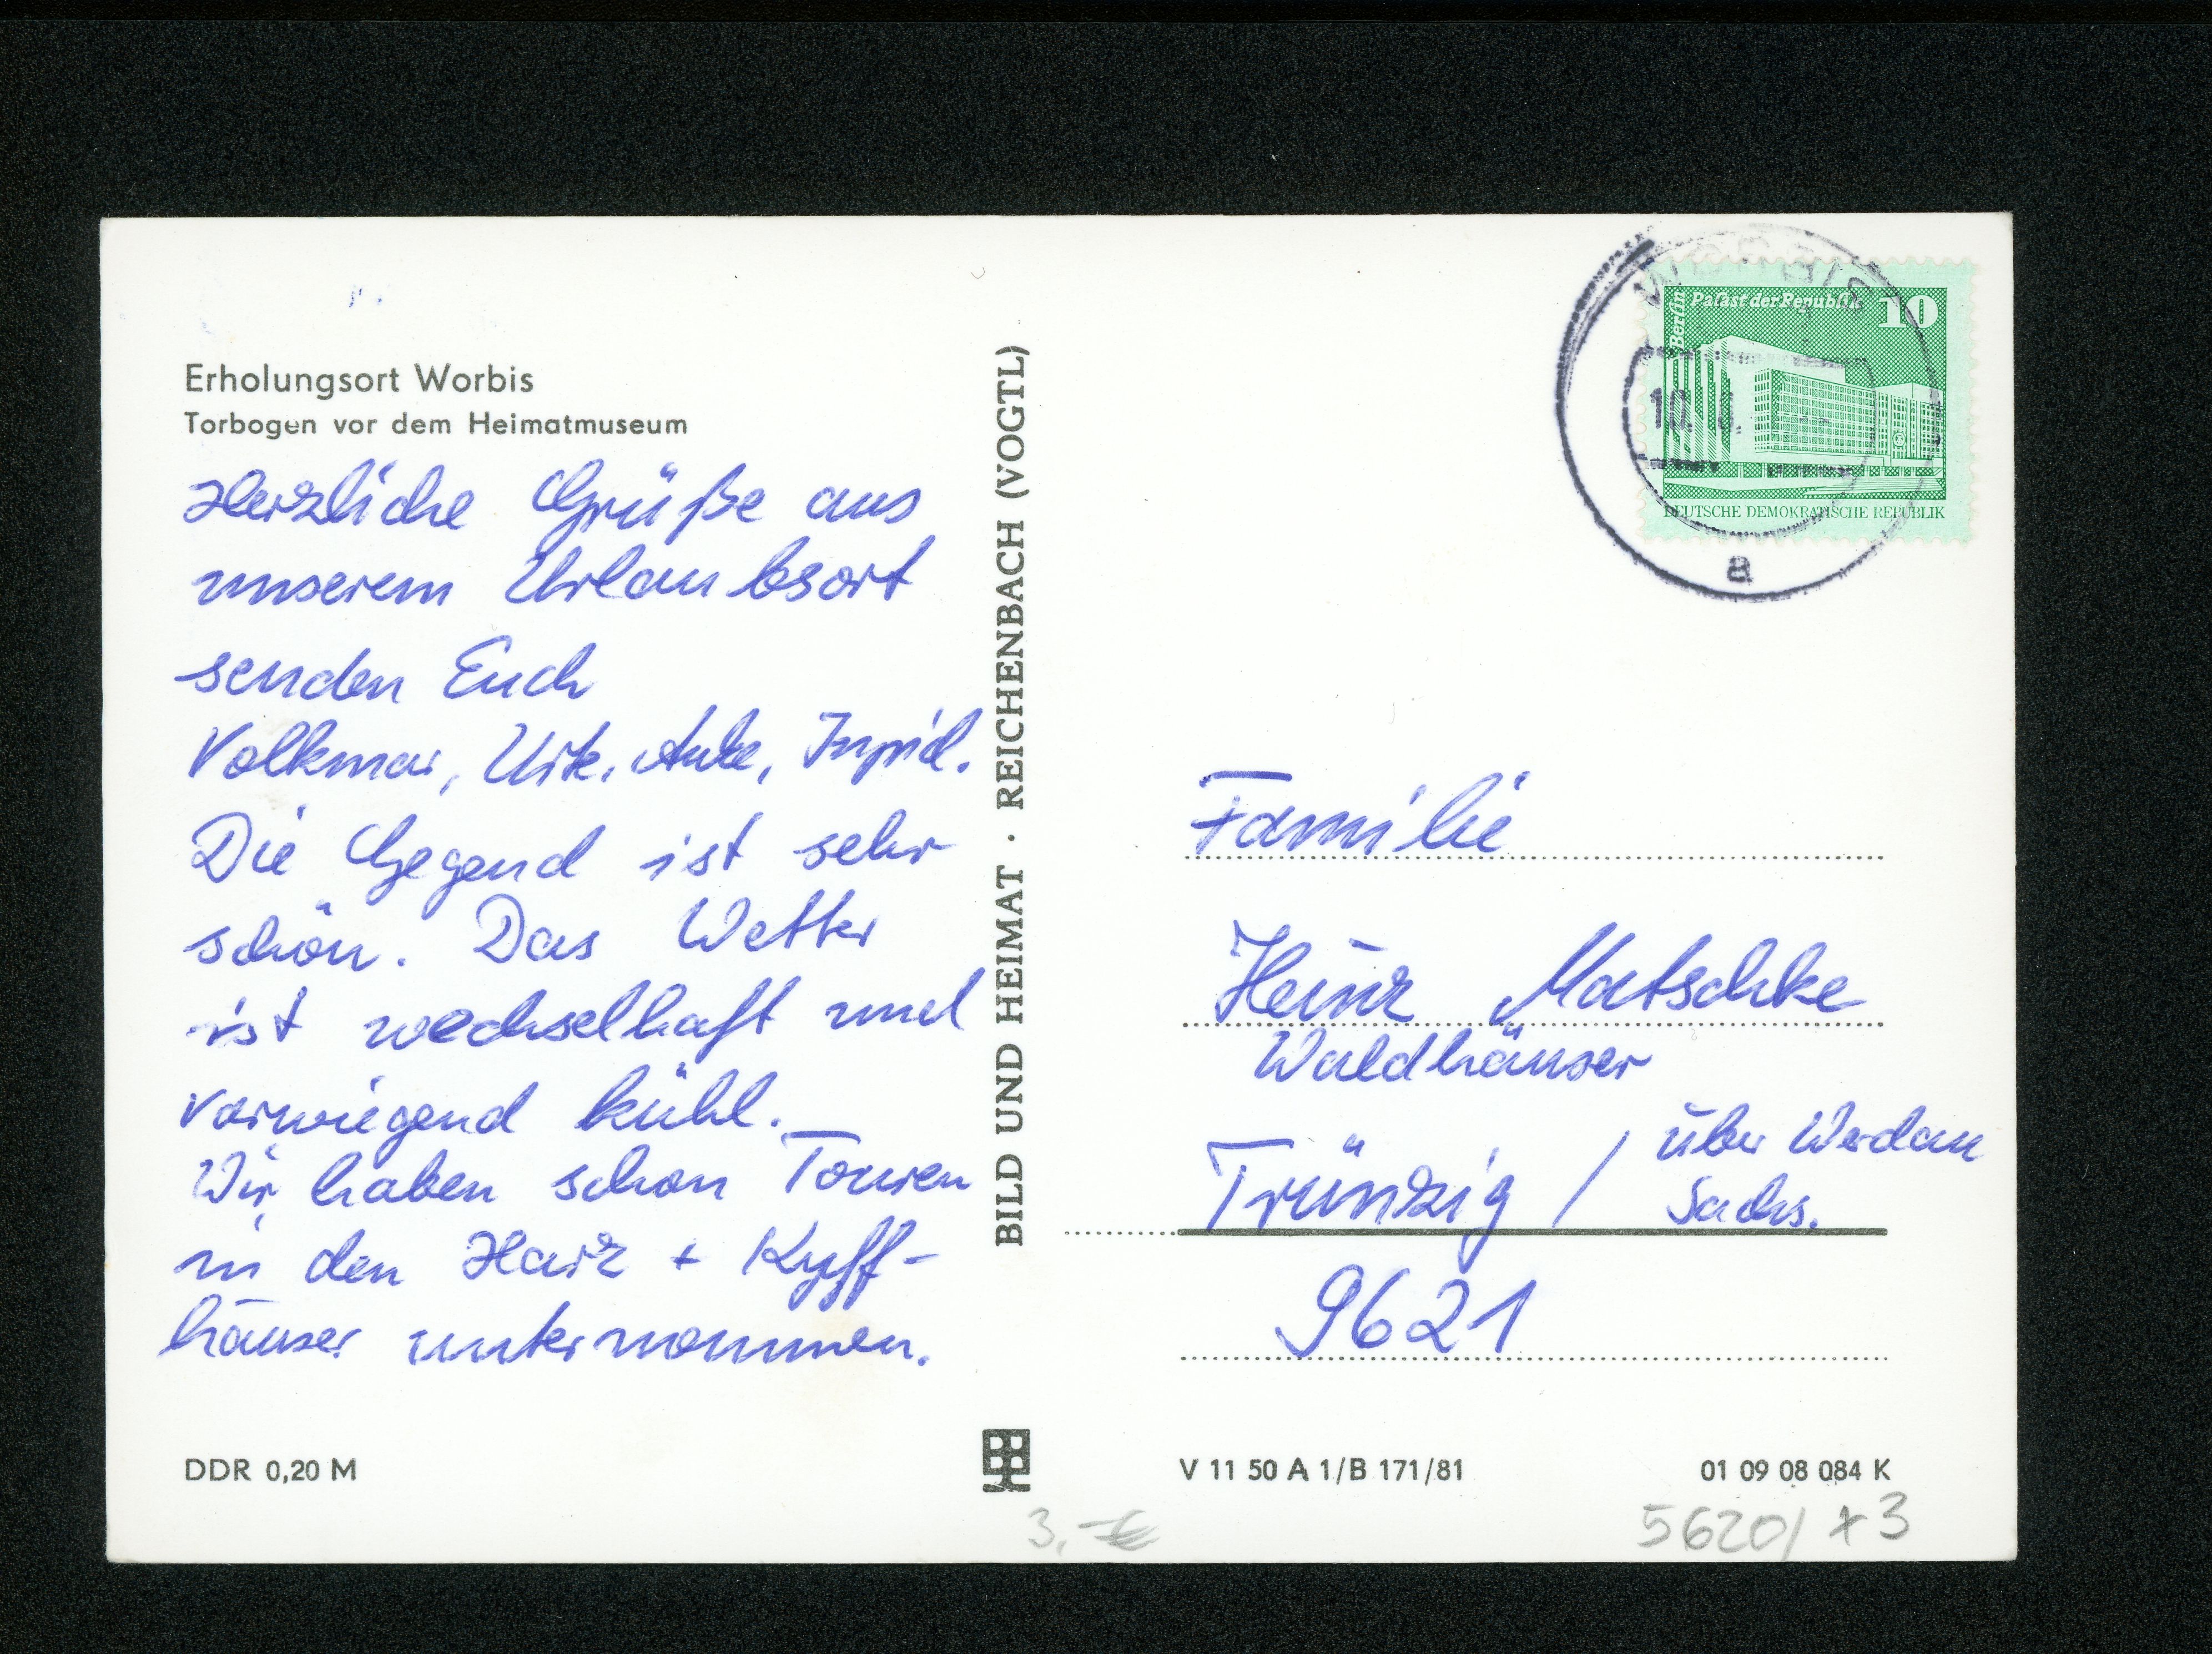 Erholungsort Worbis
Torbogen vor dem Heimatmuseum
Herzliche Grüße aus
unserem Urlaubsort
senden Euch
Volkmar, Ingrid.
Die Gegend ist sehr
schön. Das Wetter
ist wechselhaft und
vorwiegend kühl.
Wir haben schon Touren
in den Harz + Kyff-
häuser unternommen.
DDR 0,20 M
BILD UND HEIMAT · REICHENBACH (VOGTL)
WORBIS
10.
a
Berlin
Palast der Republik
10
DEUTSCHE DEMOKRATISCHE REPUBLIK
Familie
Heinz Matschke
Waldhäuser
Trünzig / über Werdau
Sachs.
9621
V 11 50 A 1/B 171/81
01 09 08 084 K
3,-€
5620/ +3